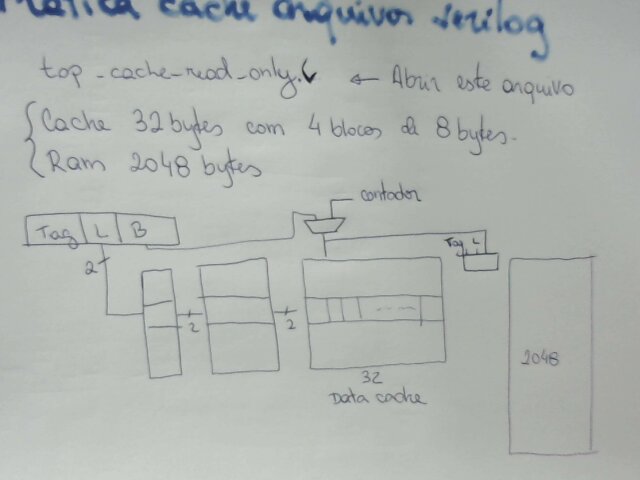 cache arquivos verilog
top_cache_read_only.v ← Abrir este arquivo
Cache 32 bytes com 4 blocos de 8 bytes.
Ram 2048 bytes
contador
Tag L B
Tag L
2
2
2
2048
32
Data cache